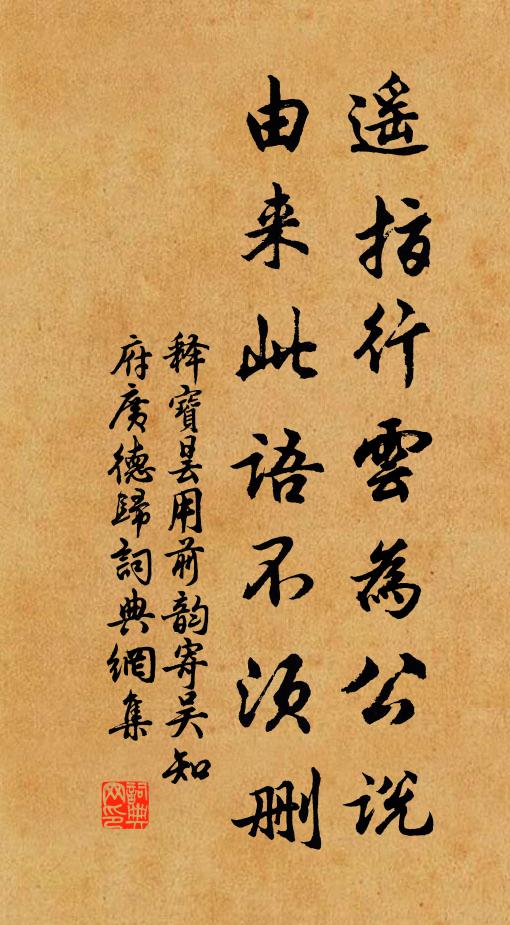 遥指行雲為公说
由来此語不须删
释寶曇用前韵寄吴知
府廣德歸詞典網集
詞典
网印